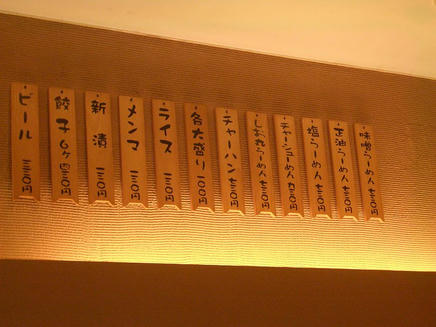 味噌らーめん 七三〇円
正油らーめん 七三〇円
塩らーめん 七三〇円
チャーシューめん 九三〇円
しお丸らーめん 七三〇円
チャーハン 七三〇円
各大盛り 一〇〇円
ライス 一三〇円
メンマ 一三〇円
新漬 一三〇円
餃子 6ヶ 四三〇円
ビール 三三〇円